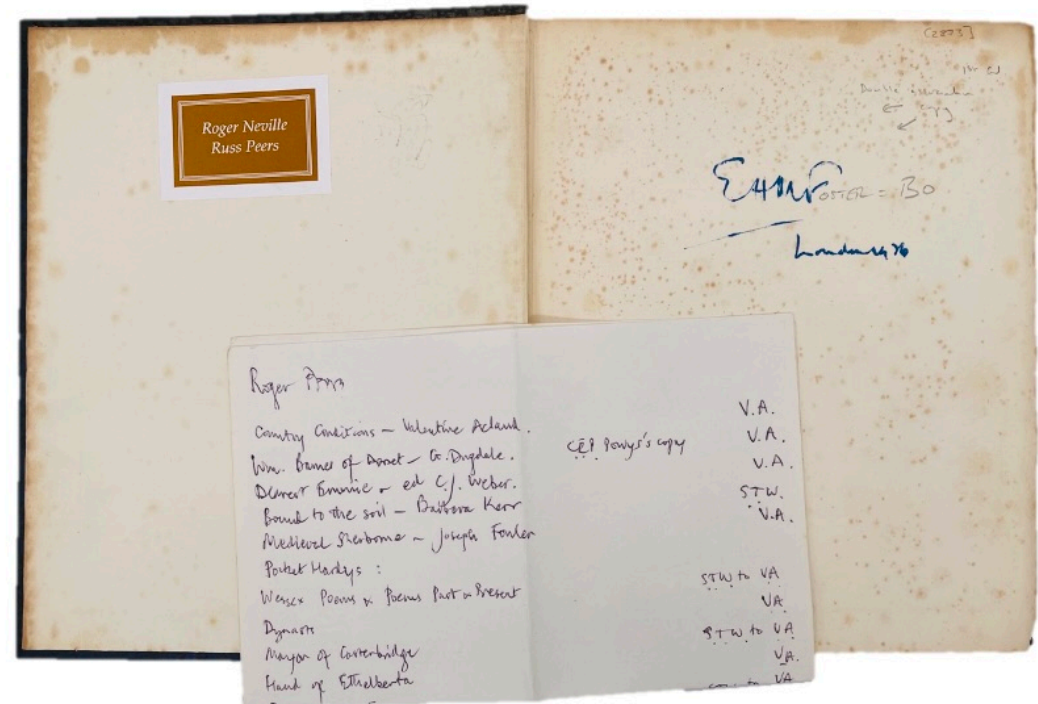 Roger Neville
Russ Peers
[2873]
1st ed
Double
copy
London
Roger Peers
Country Conditions – Valentine Acland. V.A.
Wm. Barnes of Dorset – G. Dugdale. CEP Powys's copy V.A.
Dearest Emmie – ed C.J. Weber. V.A.
Bound to the soil – Barbara Kerr STW.
Medieval Sherborne – Joseph Fowler V.A.
Pocket Hardys :
Wessex Poems & Poems Past & Present STW to VA
Dynasts VA
Mayor of Casterbridge STW to VA
Hand of Ethelberta VA.
to VA